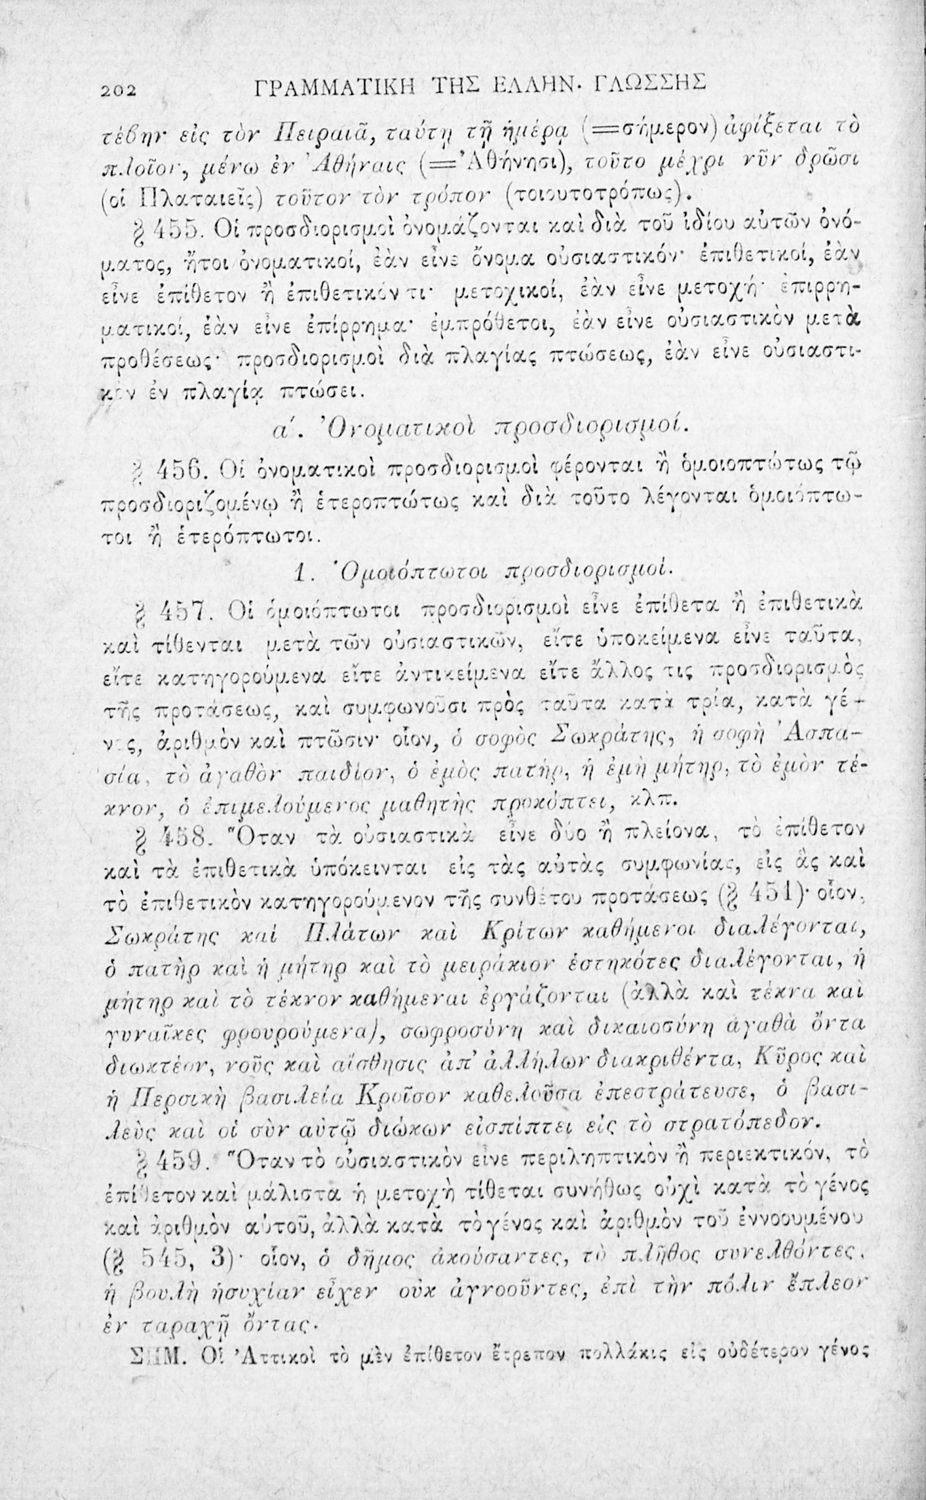 202 ΓΡΑΜΜΑΤΙΚΗ ΤΗΣ ΕΛΛΗΝ· ΓΛΩΣΣΗΣ
τέβην εἰς τὸν Πειραιᾶ, ταύτῃ τῇ ἡμέρᾳ (=σήμερον) ἀφίξεται τὸ
πλοῖον, μένω ἐν Ἀθήναις (=Ἀθήνησι), τοῦτο μέχρι νῦν δρῶσι
(οἱ Πλαταιεῖς) τοῦτον τὸν τρόπον (τοιουτοτρόπως).
§ 455. Οἱ προσδιορισμοὶ ὀνομάζονται καὶ διὰ τοῦ ἰδίου αὐτῶν ὀνό-
ματος, ἤτοι ὀνοματικοί, ἐὰν εἶνε ὄνομα οὐσιαστικόν· ἐπιθετικοί, ἐὰν
εἶνε ἐπίθετον ἢ ἐπιθετικόν τι· μετοχικοί, ἐὰν εἶνε μετοχή· ἐπιρρη-
ματικοί, ἐὰν εἶνε ἐπίρρημα· ἐμπρόθετοι, ἐὰν εἶνε οὐσιαστικὸν μετὰ
προθέσεως· προσδιορισμοὶ διὰ πλαγίας πτώσεως, ἐὰν εἶνε οὐσιαστι-
κὸν ἐν πλαγίᾳ πτώσει.
α΄. Ὀνοματικοὶ προσδιορισμοί.
§ 456. Οἱ ὀνοματικοὶ προσδιορισμοὶ φέρονται ἢ ὁμοιοπτώτως τῷ
προσδιοριζομένῳ ἢ ἑτεροπτώτως καὶ διὰ τοῦτο λέγονται ὁμοιόπτω-
τοι ἢ ἑτερόπτωτοι.
1. Ὁμοιόπτωτοι προσδιορισμοί.
§ 457. Οἱ ὁμοιόπτωτοι προσδιορισμοὶ εἶνε ἐπίθετα ἢ ἐπιθετικὰ
καὶ τίθενται μετὰ τῶν οὐσιαστικῶν, εἴτε ὑποκείμενα εἶνε ταῦτα,
εἴτε κατηγορούμενα εἴτε ἀντικείμενα εἴτε ἄλλος τις προσδιορισμὸς
τῆς προτάσεως, καὶ συμφωνοῦσι πρὸς ταῦτα κατὰ τρία, κατὰ γέ-
νος, ἀριθμὸν καὶ πτῶσιν· οἷον, ὁ σοφὸς Σωκράτης, ἡ σοφὴ Ἀσπα-
σία, τὸ ἀγαθὸν παιδίον, ὁ ἐμὸς πατήρ, ἡ ἐμὴ μήτηρ, τὸ ἐμὸν τέ-
κνον, ὁ ἐπιμελούμενος μαθητὴς προκόπτει, κλπ.
§ 458. Ὅταν τὰ οὐσιαστικὰ εἶνε δύο ἢ πλείονα, τὸ ἐπίθετον
καὶ τὰ ἐπιθετικὰ ὑπόκεινται εἰς τὰς αὐτὰς συμφωνίας, εἰς ἃς καὶ
τὸ ἐπιθετικὸν κατηγορούμενον τῆς συνθέτου προτάσεως (§ 451)· οἷον,
Σωκράτης καὶ Πλάτων καὶ Κρίτων καθήμενοι διαλέγονται,
ὁ πατὴρ καὶ ἡ μήτηρ καὶ τὸ μειράκιον ἑστηκότες διαλέγονται, ἡ
μήτηρ καὶ τὸ τέκνον καθήμεναι ἐργάζονται (ἀλλὰ καὶ τέκνα καὶ
γυναῖκες φρουρούμενα), σωφροσύνη καὶ δικαιοσύνη ἀγαθὰ ὄντα
διωκτέον, νοῦς καὶ αἴσθησις ἀπ' ἀλλήλων διακριθέντα, Κῦρος καὶ
ἡ Περσικὴ βασιλεία Κροῖσον καθελοῦσα ἐπεστράτευσε, ὁ βασι-
λεὺς καὶ οἱ σὺν αὐτῷ διώκων εἰσπίπτει εἰς τὸ στρατόπεδον.
§ 459. Ὅταν τὸ οὐσιαστικὸν εἶνε περιληπτικὸν ἢ περιεκτικόν, τὸ
ἐπίθετον καὶ μάλιστα ἡ μετοχὴ τίθεται συνήθως οὐχὶ κατὰ τὸ γένος
καὶ ἀριθμὸν αὐτοῦ, ἀλλὰ κατὰ τὸ γένος καὶ ἀριθμὸν τοῦ ἐννοουμένου
(§ 545, 3)· οἷον, ὁ δῆμος ἀκούσαντες, τὸ πλῆθος συνελθόντες,
ἡ βουλὴ ἡσυχίαν εἶχεν οὐκ ἀγνοοῦντες, ἐπὶ τὴν πόλιν ἔπλεον
ἐν ταραχῇ ὄντας.
ΣΗΜ. Οἱ Ἀττικοὶ τὸ μὲν ἐπίθετον ἔτρεπον πολλάκις εἰς οὐδέτερον γένος